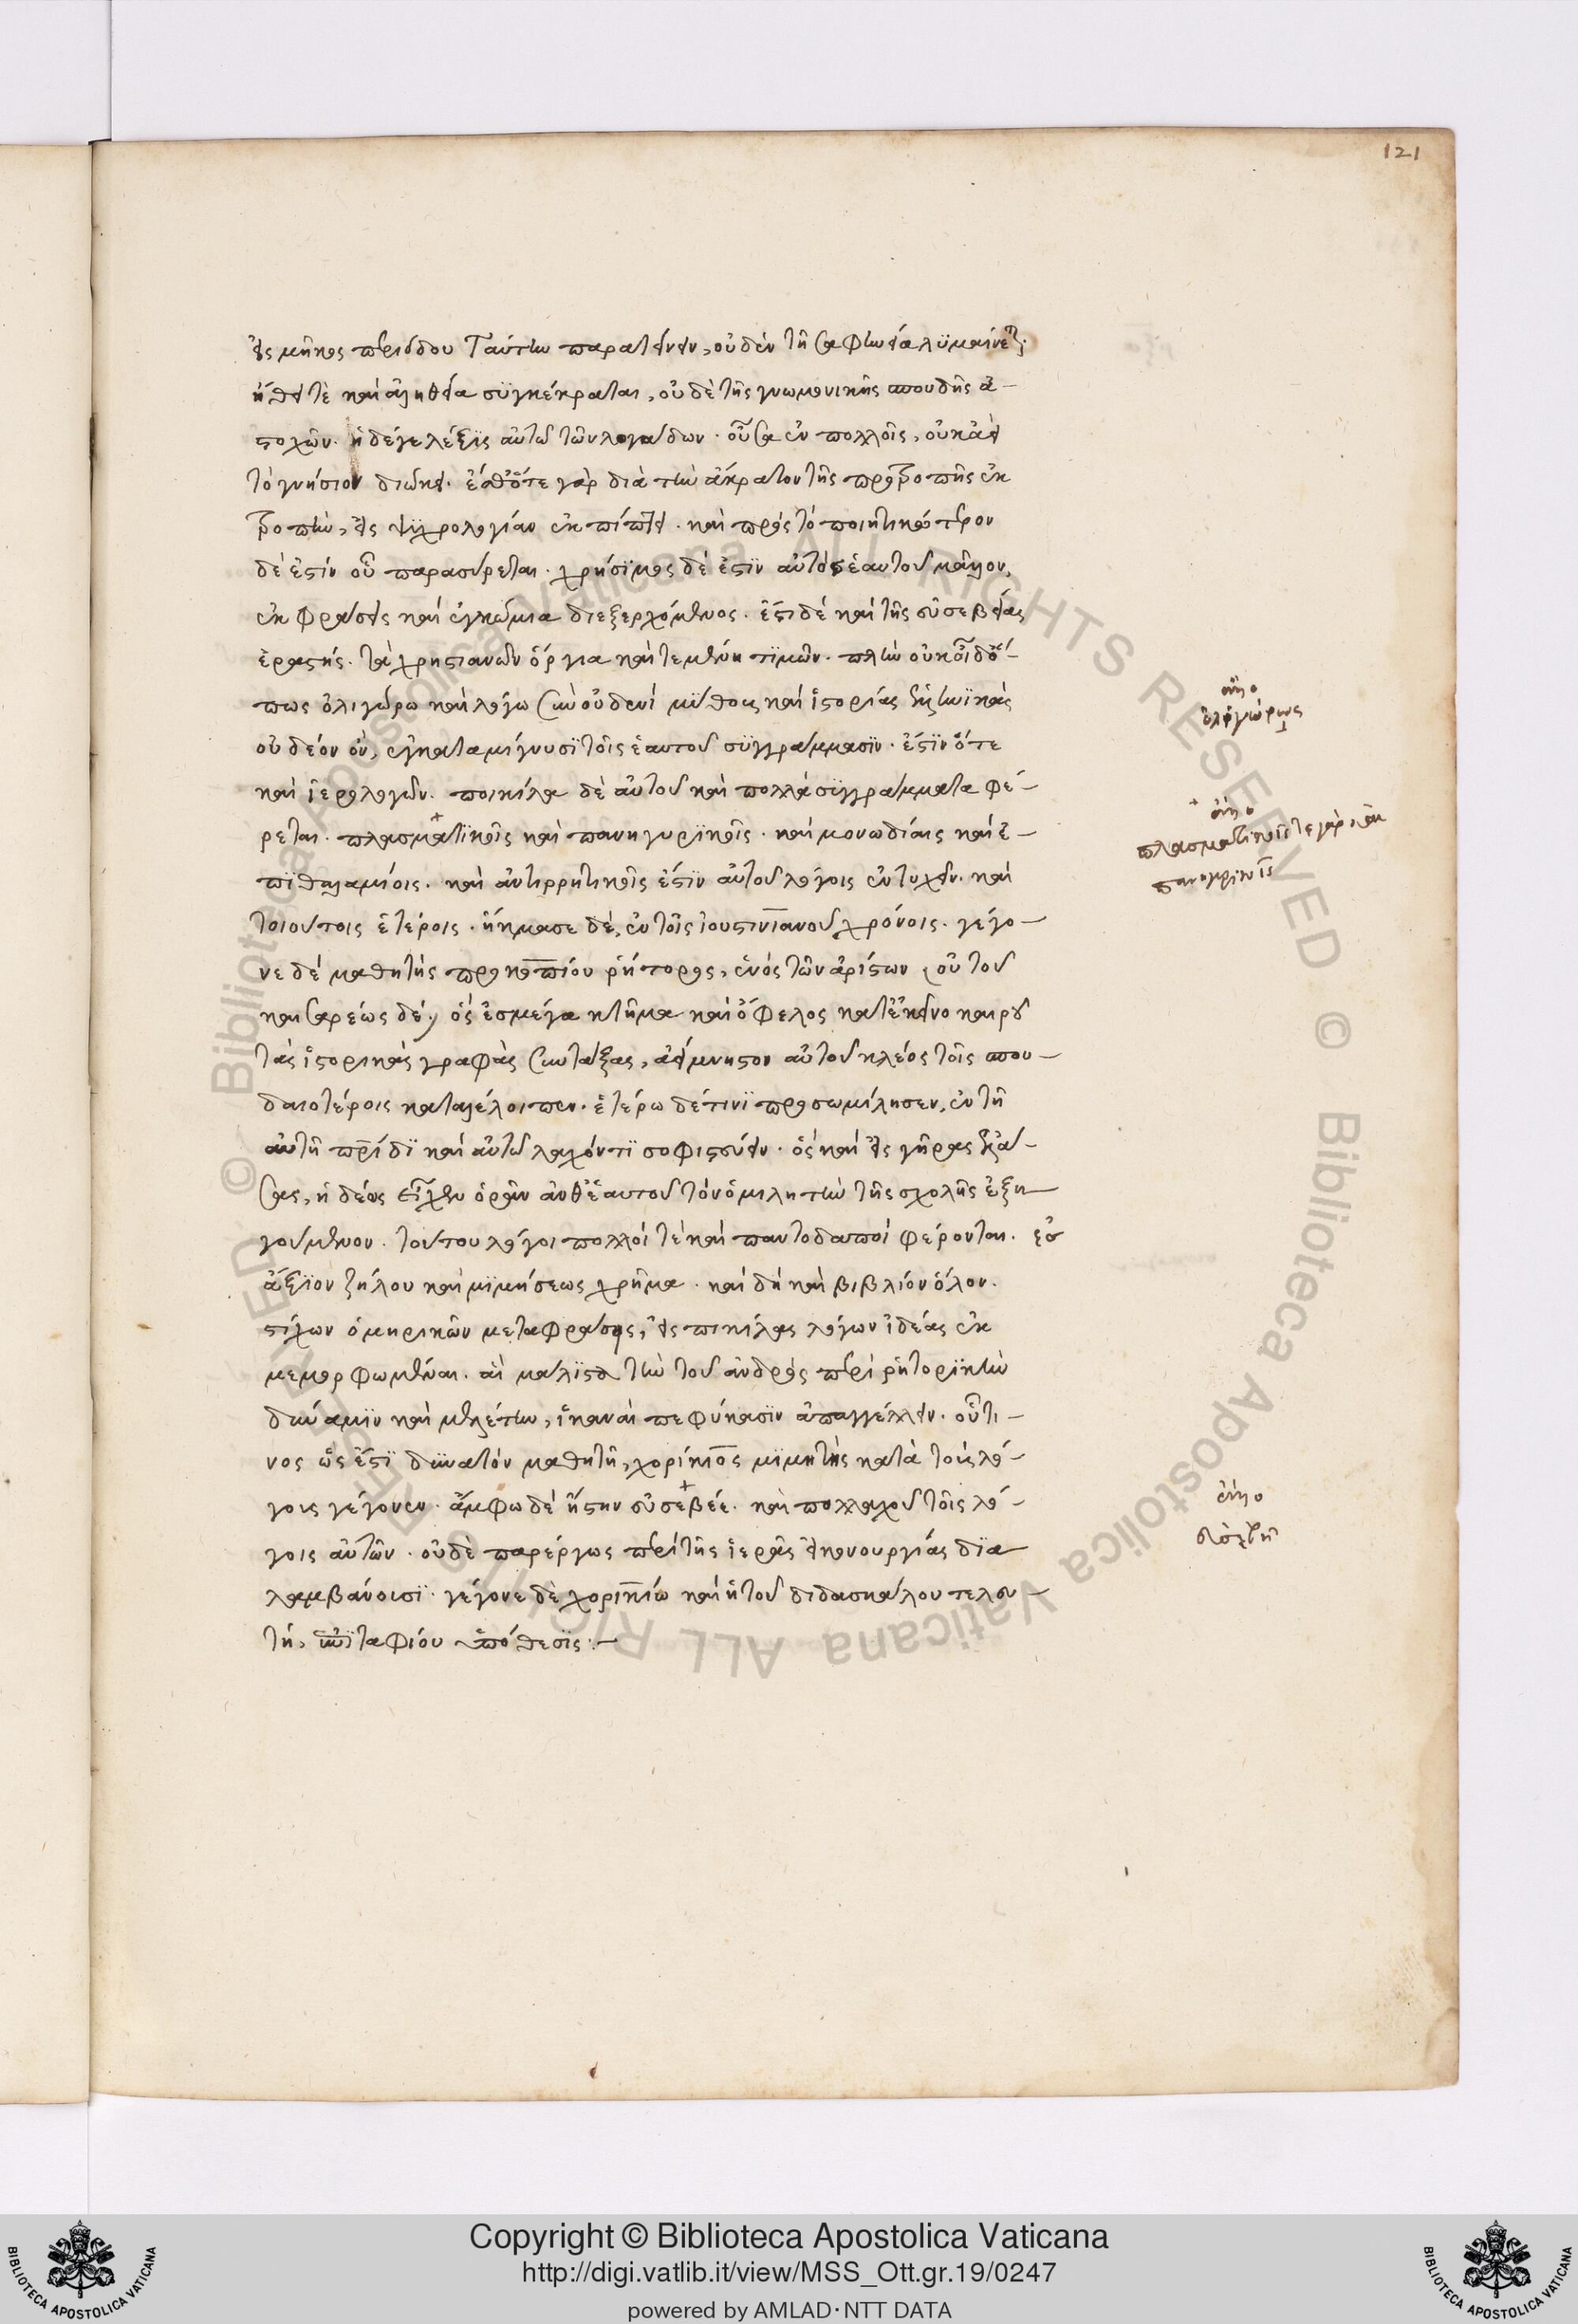 121
εἰς μῆκος περιόδου ταύτην παρατείνειν, οὐδὲν τῇ σαφηνείᾳ λυμαίνεται·
ἤθει τὲ καὶ ἀληθείᾳ συγκέκραται, οὐδὲ τῆς γνωμονικῆς σπουδῆς ἀ-
στοχῶν. ἡ δέγε λέξις αὐτῷ τῶν λογάδων· οὖσα ἐν πολλοῖς, οὐκ ἀεὶ
τὸ γνήσιον διώκει. ἔσθ' ὅτε γὰρ διὰ τὴν ἄκρατον τῆς προτροπῆς ἐκ
τροπὴν, εἰς ψυχρολογίαν ἐκπίπτει. καὶ πρὸς τὸ ποιητικώτερον
δὲ ἐστὶν οὗ παρασύρεται. χρήσιμος δέ ἐστιν αὐτὸς ἑαυτοῦ μᾶλλον,
ἐκφράσεις καὶ ἐγκώμια διεξερχόμενος. ἔστι δὲ καὶ τῆς εὐσεβείας
ἐραστής. τὰ χρηστιανῶν ὄργια καὶ τεμένη τιμῶν. πλὴν οὐκ οἶδ' ὅ-
πως ὀλιγώρῳ καὶ λόγῳ σὺν οὐδενὶ μύθους καὶ ἱστορίας ἑλληνικὰς
οὐ δέον ὂν, ἐγκαταμίγνυσι τοῖς ἑαυτοῦ συγγράμμασιν. ἔστιν ὅτε
καὶ ἱερολογῶν. ποικίλα δὲ αὐτοῦ καὶ πολλὰ συγγράμματα φέ-
ρεται. πλασματικοῖς καὶ πανηγυρικοῖς. καὶ μονωδίαις καὶ ἐ-
πιθαλαμίοις. καὶ ἀντιρρητικοῖς ἐστὶν αὐτοῦ λόγοις ἐντυχεῖν. καὶ
τοιούτοις ἑτέροις. ἤκμασε δὲ, ἐν τοῖς ἰουστινιανοῦ χρόνοις. γέγο-
νε δὲ μαθητὴς προκοπίου ῥήτορος, ἑνὸς τῶν ἀρίστων (οὐ τοῦ
καισαρέως δέ) ὃς ἐς μέγα κτῆμα καὶ ὄφελος κατ' ἐκεῖνο καιροῦ
τὰς ἱστορικὰς γραφὰς συντάξας, ἀείμνηστον αὐτοῦ κλέος τοῖς σπου-
δαιοτέροις καταλέλοιπεν. ἑτέρῳ δέ τινι προσωμίλησεν, ἐν τῇ
αὐτῇ πατρίδι καὶ αὐτῷ λαχόντι σοφιστεύειν. ὃς καὶ εἰς γῆρας ἐλά-
σας, ἡδέως εἶχεν ὁρᾶν ἀνθ' ἑαυτοῦ τὸν ὁμιλητὴν τῆς σχολῆς ἐξη-
γούμενον. τούτου λόγοι πολλοί τε καὶ παντοδαποὶ φέρονται.
ἄξιον ζήλου καὶ μιμήσεως χρῆμα. καὶ δὴ καὶ βιβλίον ὅλον.
στίχων ὁμηρικῶν μεταφράσεις, εἰς πικίλας λόγων ἰδέας ἐκ
μεμορφωμέναι. αἳ μάλιστα τὴν τοῦ ἀνδρὸς περὶ ῥητορικὴν
δύναμιν καὶ μελέτην, ἱκαναὶ πεφύκασιν ἀπαγγέλλειν. οὗτι-
νος ὡς ἔστι δυνατὸν μαθητῇ, χορίκιος μιμητὴς κατὰ τοὺς λό-
γους γέγονεν. ἄμφω δὲ ἤστην εὐσεβέε. καὶ πολλαχοῦ τοῖς λό-
γοις αὐτῶν. οὐδὲ παρέργως περὶ τῆς ἱερᾶς εἰκονουργίας δια
λαμβάνουσι. γέγονε δὲ χορικίῳ καὶ ἡ τοῦ διδασκάλου τελευ-
τή, ἐπιταφίου ὑπόθεσις:—
ὀλιγώρως
πλασματικοῖς τε γὰρ καὶ
πανηγυρικοῖς
εὐσεβῆ
Copyright © Biblioteca Apostolica Vaticana
http://digi.vatlib.it/view/MSS_Ott.gr.19/0247
powered by AMLAD·NTT DATA